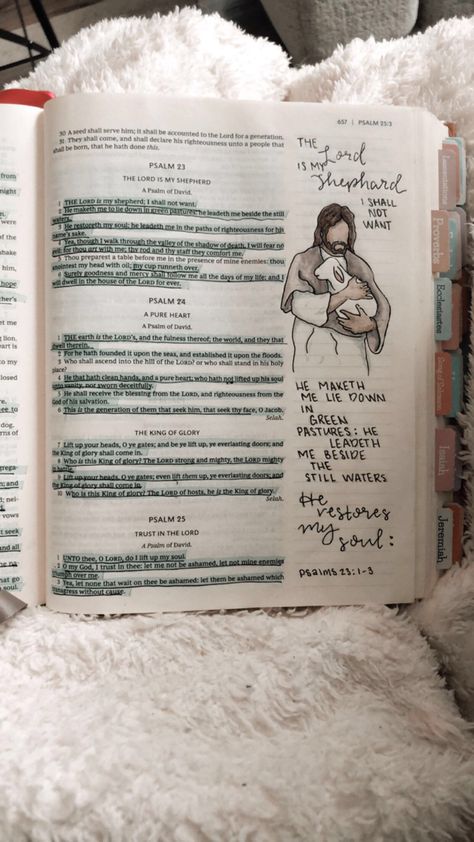 657 | PSALM 25:3
30 A seed shall serve him; it shall be accounted to the Lord for a generation.
31 They shall come, and shall declare his righteousness unto a people that
shall be born, that he hath done this.
PSALM 23
THE LORD IS MY SHEPHERD
A Psalm of David.
1 THE LORD is my shepherd; I shall not want.
2 He maketh me to lie down in green pastures: he leadeth me beside the still
waters.
3 He restoreth my soul: he leadeth me in the paths of righteousness for his
name's sake.
4 Yea, though I walk through the valley of the shadow of death, I will fear no
evil: for thou art with me; thy rod and thy staff they comfort me.
5 Thou preparest a table before me in the presence of mine enemies: thou
anointest my head with oil; my cup runneth over.
6 Surely goodness and mercy shall follow me all the days of my life: and I
will dwell in the house of the LORD for ever.
PSALM 24
A PURE HEART
A Psalm of David.
1 THE earth is the LORD's, and the fulness thereof; the world, and they that
dwell therein.
2 For he hath founded it upon the seas, and established it upon the floods.
3 Who shall ascend into the hill of the LORD? or who shall stand in his holy
place?
4 He that hath clean hands, and a pure heart; who hath not lifted up his soul
unto vanity, nor sworn deceitfully.
5 He shall receive the blessing from the LORD, and righteousness from the
God of his salvation.
6 This is the generation of them that seek him, that seek thy face, O Jacob.
Selah.
THE KING OF GLORY
7 Lift up your heads, O ye gates; and be ye lift up, ye everlasting doors; and
the King of glory shall come in.
8 Who is this King of glory? The LORD strong and mighty, the LORD mighty
in battle.
9 Lift up your heads, O ye gates; even lift them up, ye everlasting doors; and
the King of glory shall come in.
10 Who is this King of glory? The LORD of hosts, he is the King of glory.
Selah.
PSALM 25
TRUST IN THE LORD
A Psalm of David.
1 UNTO thee, O LORD, do I lift up my soul.
2 O my God, I trust in thee: let me not be ashamed, let not mine enemies
triumph over me.
3 Yea, let none that wait on thee be ashamed: let them be ashamed which
transgress without cause.
THE Lord
IS MY
Shephard
I SHALL
NOT
WANT
HE MAKETH
ME LIE DOWN
IN
GREEN
PASTURES: HE
LEADETH
ME BESIDE
THE
STILL WATERS
He
restores
my
soul:
psalms 23:1-3
Proverbs
Ecclesiastes
Song of Solomon
Isaiah
Jeremiah